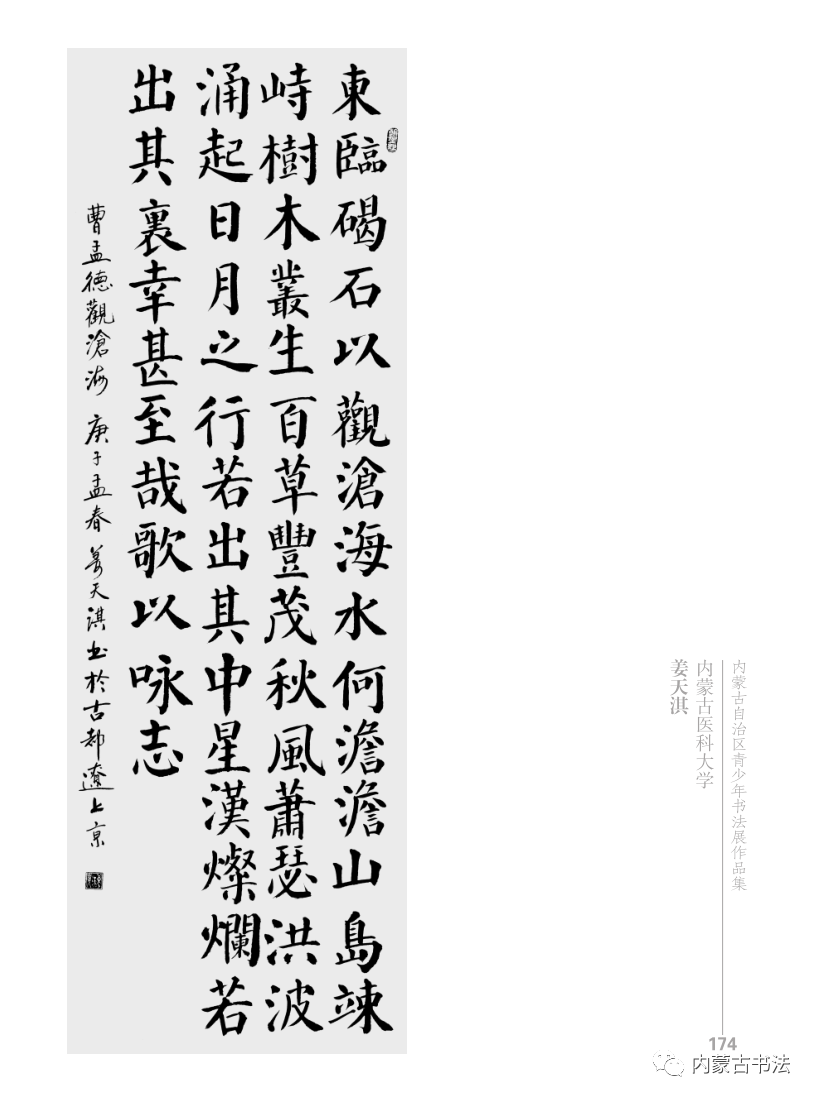 東臨碣石以觀滄海水何澹澹山島竦
峙樹木叢生百草豐茂秋風蕭瑟洪波
涌起日月之行若出其中星漢燦爛若
出其裏幸甚至哉歌以咏志
曹孟德觀滄海 庚子孟春 姜天淇书於古都遼上京
内蒙古自治区青少年书法展作品集
内蒙古医科大学
姜天淇
174
内蒙古书法